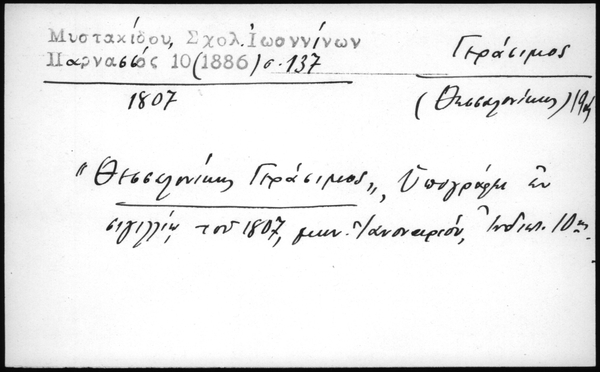 Μυστακίδου, Σχολ. Ἰωαννίνων
Παρνασσός 10 (1886) σ. 137
Γεράσιμος
1807
(Θεσσαλονίκης) 19ος
"Θεσσαλονίκης Γεράσιμος", ὑπογράφει ἐν
σιγιλλίῳ τοῦ 1807, μην. Ἰανουαρίου, Ἰνδικτ. 10ης.